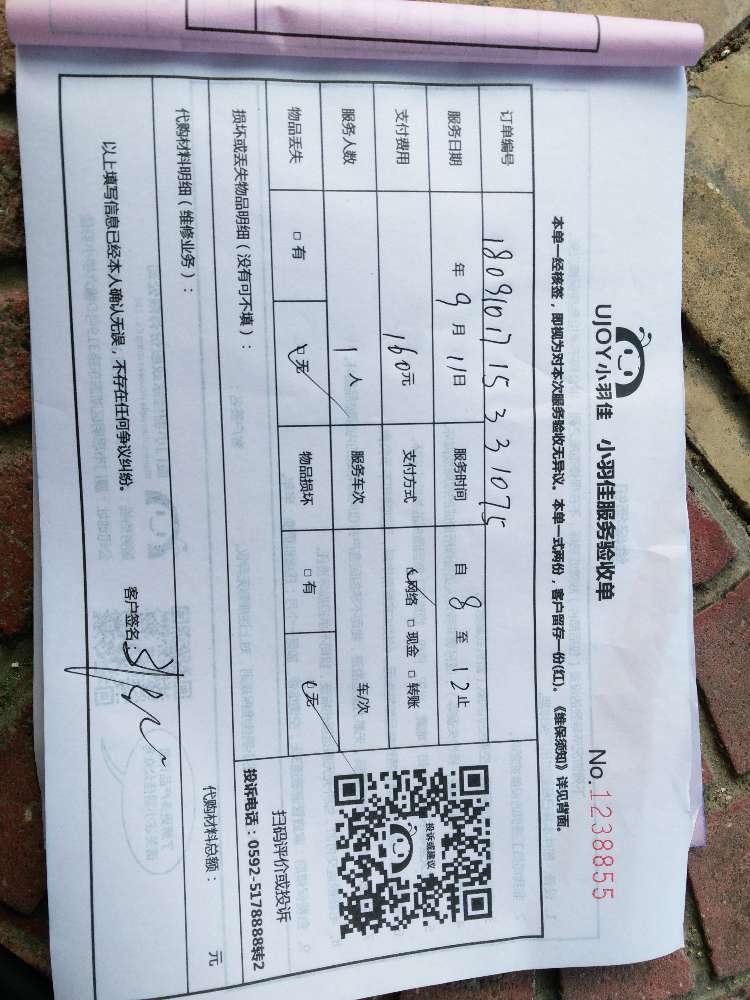 UJOY小羽佳 小羽佳服务验收单
No.1238855
本单一经核签，即视为对本次服务验收无异议。本单一式两份，客户留存一份(红)。《维保须知》详见背面。
订单编号 18091017 15 3 31075
服务日期 年 9 月 11日 服务时间 自 8 至 12 止
支付费用 160元 支付方式 ☑网络 □现金 □转账
服务人数 1 人 服务车次 车/次
物品丢失 □有 ☑无 物品损坏 □有 ☑无
投诉或建议
扫码评价或投诉
投诉电话：0592-5178888转2
损坏或丢失物品明细（没有可不填）：
代购材料明细（维修业务）：
代购材料总额： 元
以上填写信息已经本人确认无误，不存在任何争议纠纷。
客户签名：